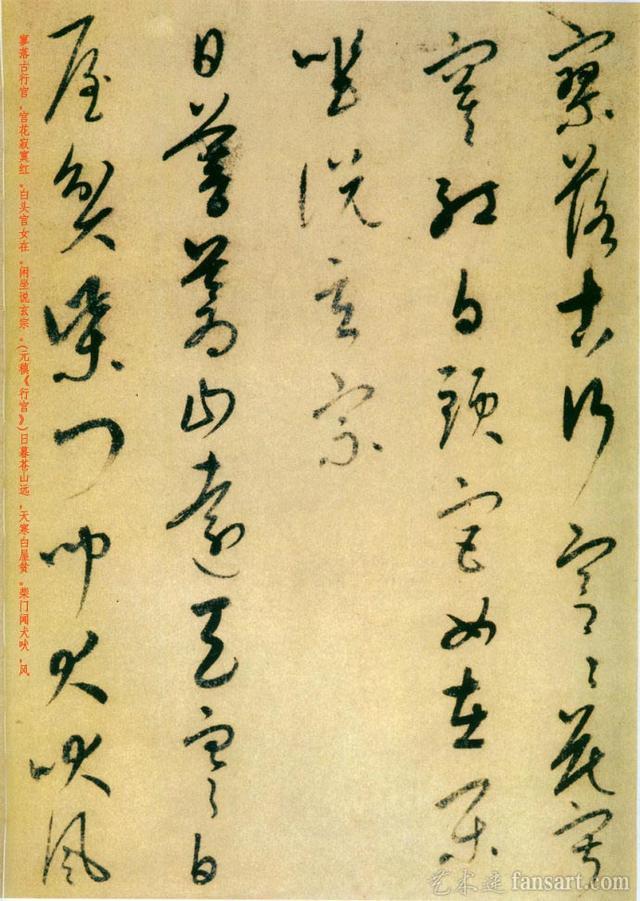 寥落古行宮〻花寂
寞紅白頭宮女在閑
坐說玄宗
日暮蒼山遠天寒白
屋貧柴門聞犬吠風
寥落古行宫，宫花寂寞红。白头宫女在，闲坐说玄宗。(元稹《行宫》)日暮苍山远，天寒白屋贫。柴门闻犬吠，风
艺术迷 fansart.com